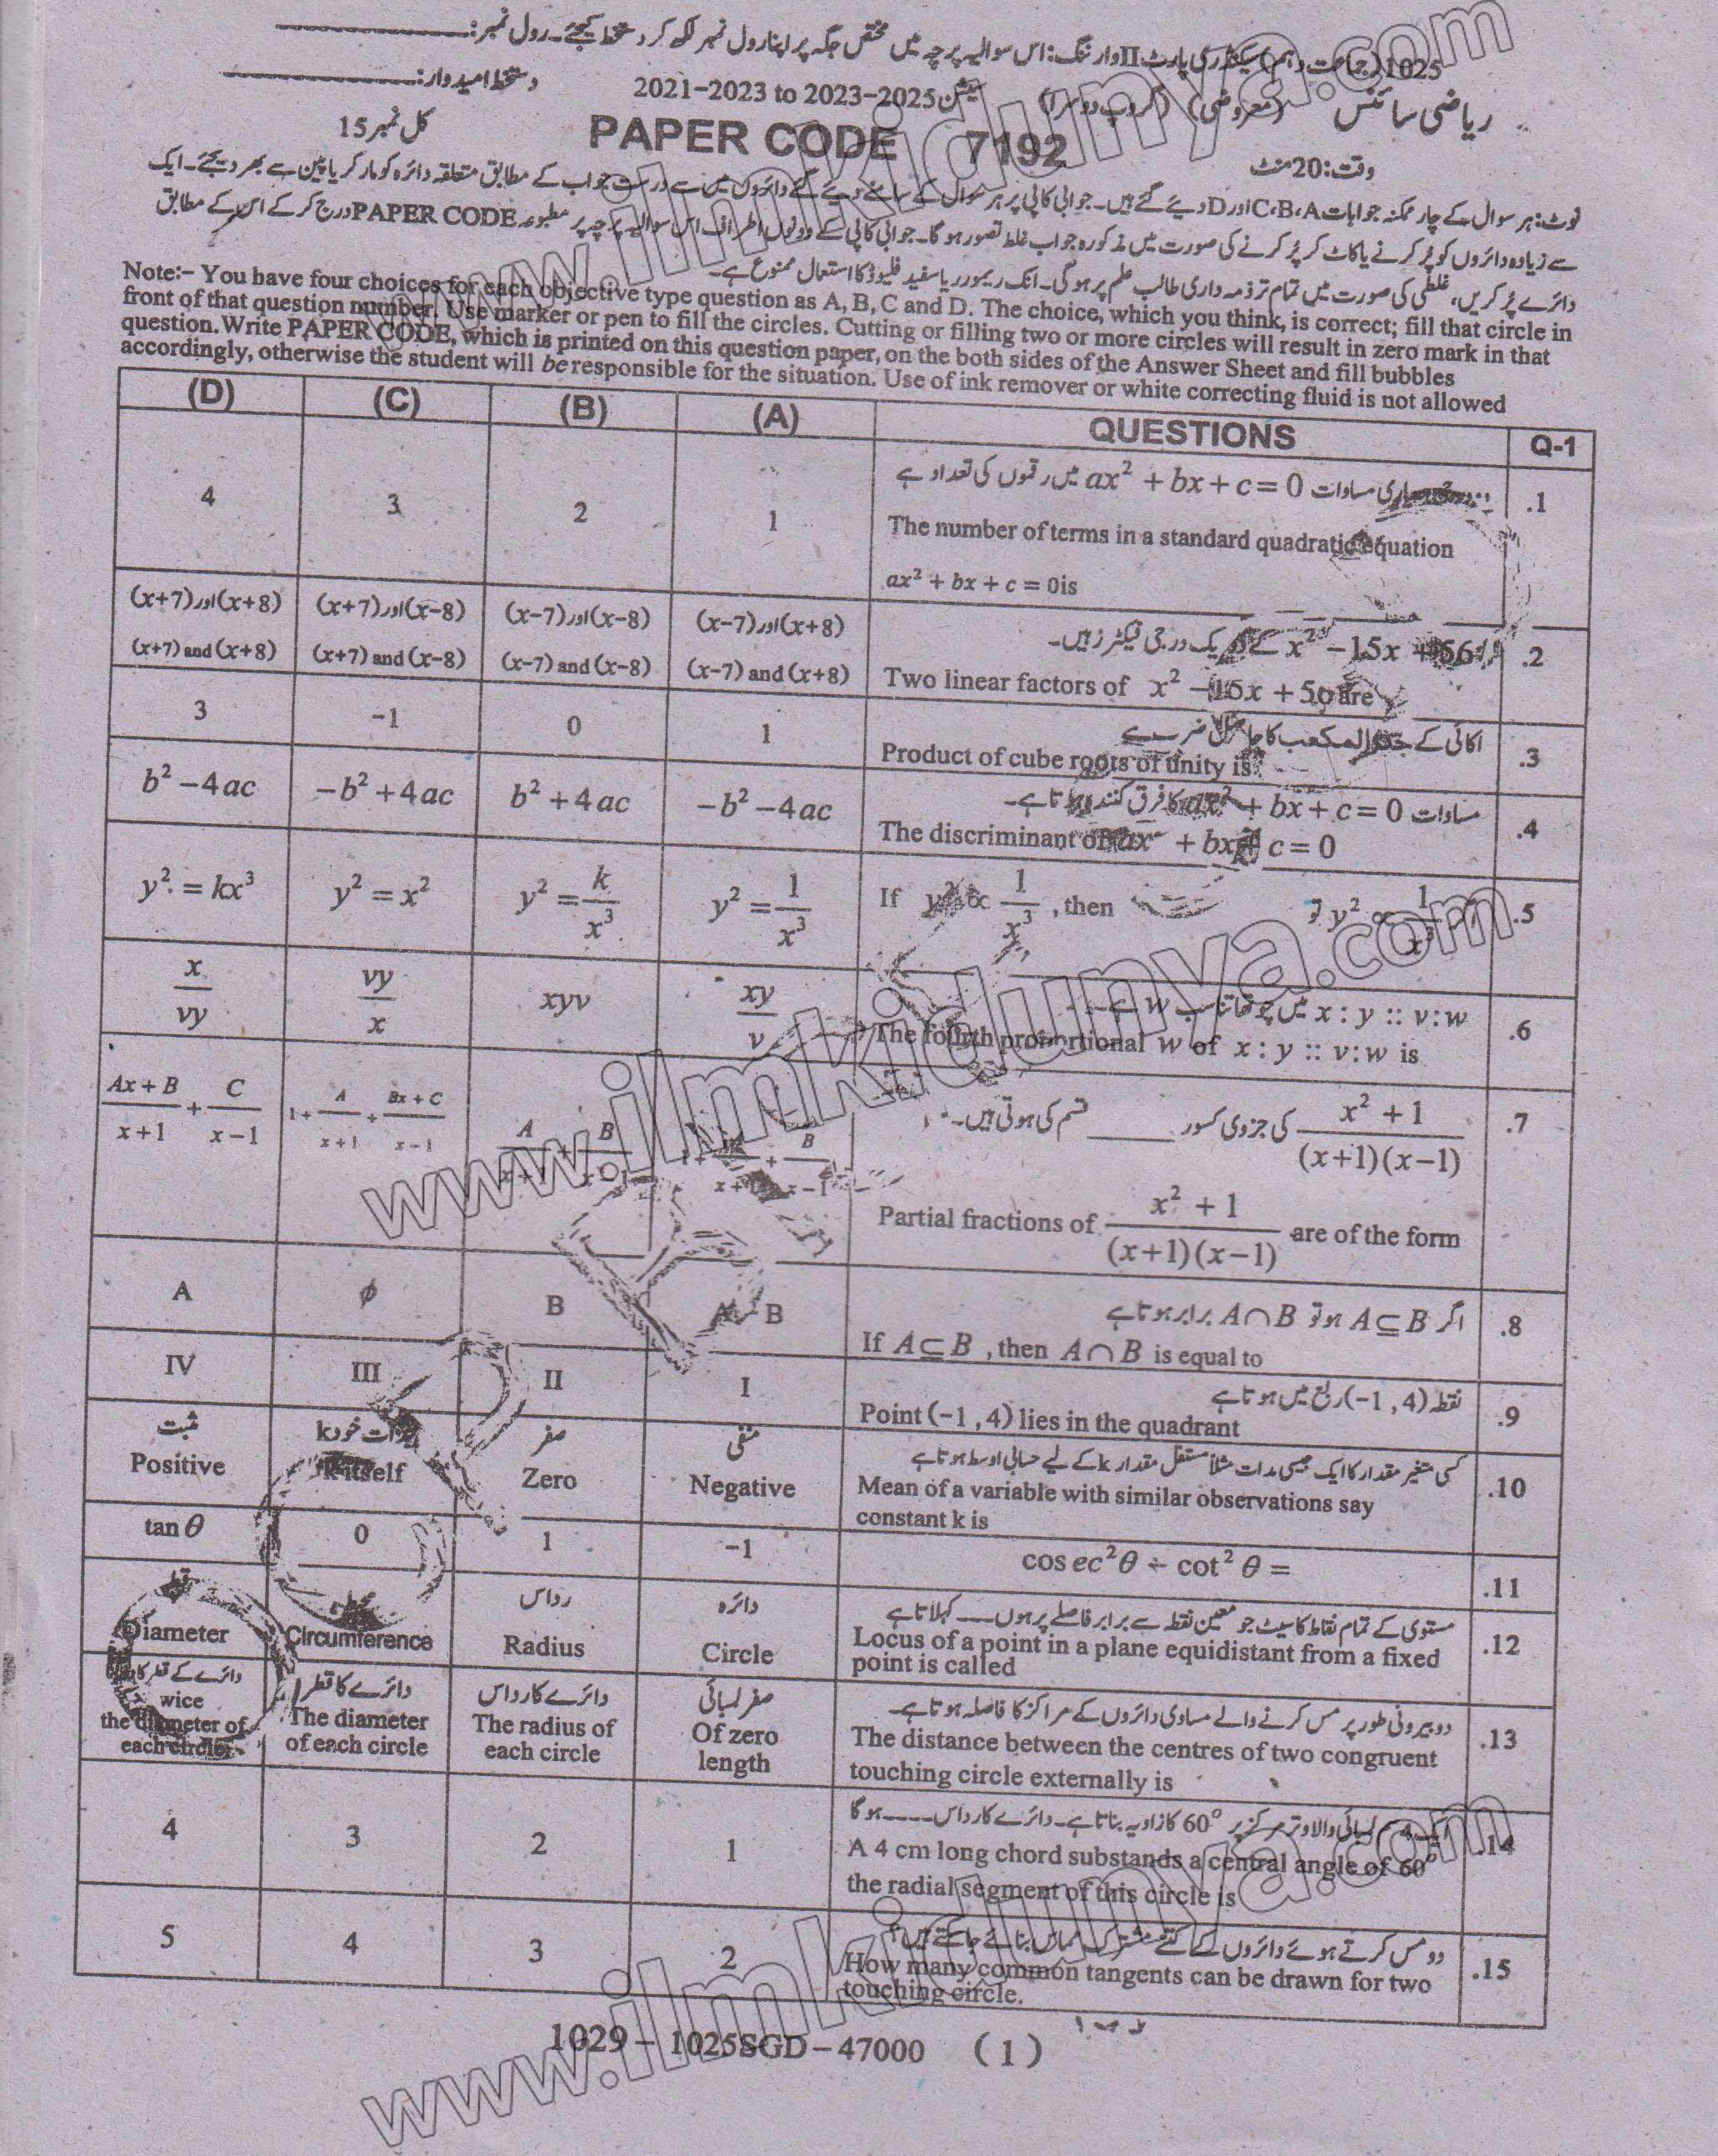 1025 (جماعت دہم) سیکنڈری پارٹ II وارننگ: اس سوالیہ پرچہ میں مختص جگہ پر اپنا رول نمبر لکھ کر دستخط کیجئے۔ رول نمبر:
ریاضی سائنس (معروضی) (گروپ دوسرا) سیشن 2021-2023 to 2023-2025 دستخط امیدوار:
وقت: 20 منٹ PAPER CODE 7192 کل نمبر 15
نوٹ: ہر سوال کے چار ممکنہ جوابات A، B، C اور D دیئے گئے ہیں۔ جوابی کاپی پر ہر سوال کے سامنے دیئے گئے دائروں میں سے درست جواب کے مطابق متعلقہ دائرہ کو مارکر یا پین سے بھر دیجئے۔ ایک
سے زیادہ دائروں کو پُر کرنے یا کاٹ کر پُر کرنے کی صورت میں مذکورہ جواب غلط تصور ہو گا۔ جوابی کاپی کے دونوں اطراف اس سوالیہ پرچہ پر مطبوعہ PAPER CODE درج کر کے اس کے مطابق
دائرے پُر کریں، غلطی کی صورت میں تمام تر ذمہ داری طالب علم پر ہو گی۔ انک ریموور یا سفید فلیوڈ کا استعمال ممنوع ہے۔
Note:- You have four choices for each objective type question as A, B, C and D. The choice, which you think, is correct; fill that circle in
front of that question number. Use marker or pen to fill the circles. Cutting or filling two or more circles will result in zero mark in that
question. Write PAPER CODE, which is printed on this question paper, on the both sides of the Answer Sheet and fill bubbles
accordingly, otherwise the student will be responsible for the situation. Use of ink remover or white correcting fluid is not allowed
(D) (C) (B) (A) QUESTIONS Q-1
مساوات ax² + bx + c = 0 میں رقموں کی تعداد ہے .1
The number of terms in a standard quadratic equation
ax² + bx + c = 0is
4 3 2 1
x² − 15x + 56 کے یک درجی فیکٹرز ہیں۔ .2
Two linear factors of x² − 15x + 56 are
(x+7) اور (x+8) (x+7) اور (x−8) (x−7) اور (x−8) (x−7) اور (x+8)
(x+7) and (x+8) (x+7) and (x−8) (x−7) and (x−8) (x−7) and (x+8)
اکائی کے جذر المکعب کا حاصل ضرب ہے .3
Product of cube roots of unity is
3 −1 0 1
مساوات ax² + bx + c = 0 کا فرق کنندہ ہوتا ہے۔ .4
The discriminant of ax² + bx + c = 0
b² − 4ac −b² + 4ac b² + 4ac −b² − 4ac
If y² ∝ 1/x³ , then y² ∝ 1/x³ تو .5
y² = kx³ y² = x² y² = k/x³ y² = 1/x³
x : y :: v : w میں چوتھا تناسب w ہے .6
The fourth proportional w of x : y :: v : w is
x/vy vy/x xyv xy/v
x² + 1/(x+1)(x−1) کی جزوی کسور ______ قسم کی ہوتی ہیں۔ .7
Partial fractions of x² + 1/(x+1)(x−1) are of the form
Ax + B/x+1 + C/x−1 1 + A/x+1 + Bx + C/x−1 A/x+1 + B/x−1 1 + A/x+1 + B/x−1
اگر A ⊆ B ہو تو A ∩ B برابر ہوتا ہے .8
If A ⊆ B , then A ∩ B is equal to
A ϕ B A − B
نقطہ (−1 , 4) ربع میں ہوتا ہے .9
Point (−1 , 4) lies in the quadrant
IV III II I
کسی متغیر مقدار کا ایک جیسی مدات مثلاً مستقل مقدار k کے لیے حسابی اوسط ہوتا ہے .10
Mean of a variable with similar observations say
constant k is
مثبت k خود صفر منفی
Positive k itself Zero Negative
cosec²θ ÷ cot²θ = .11
tan θ 0 1 −1
مستوی کے تمام نقاط کا سیٹ جو معین نقطہ سے برابر فاصلے پر ہوں ---- کہلاتا ہے .12
Locus of a point in a plane equidistant from a fixed
point is called
قطر محیط رداس دائرہ
Diameter Circumference Radius Circle
دو بیرونی طور پر مس کرنے والے مساوی دائروں کے مراکز کا فاصلہ ہوتا ہے۔ .13
The distance between the centres of two congruent
touching circle externally is
دائرے کے قطر کا دائرے کا قطر دائرے کا رداس صفر لمبائی
wice the diameter of each circle The diameter of each circle The radius of each circle Of zero length
4 لمبائی والا وتر مرکز پر 60° کا زاویہ بناتا ہے۔ دائرے کا رداس ---- ہو گا .14
A 4 cm long chord substands a central angle of 60°
the radial segment of this circle is
4 3 2 1
دو مس کرتے ہوئے دائروں کے کتنے مشترک مماس بنائے جا سکتے ہیں؟ .15
How many common tangents can be drawn for two
touching circle.
5 4 3 2
1029 – 1025SGD – 47000 (1)
www.ilmkidunya.com
www.ilmkidunya.com
www.ilmkidunya.com